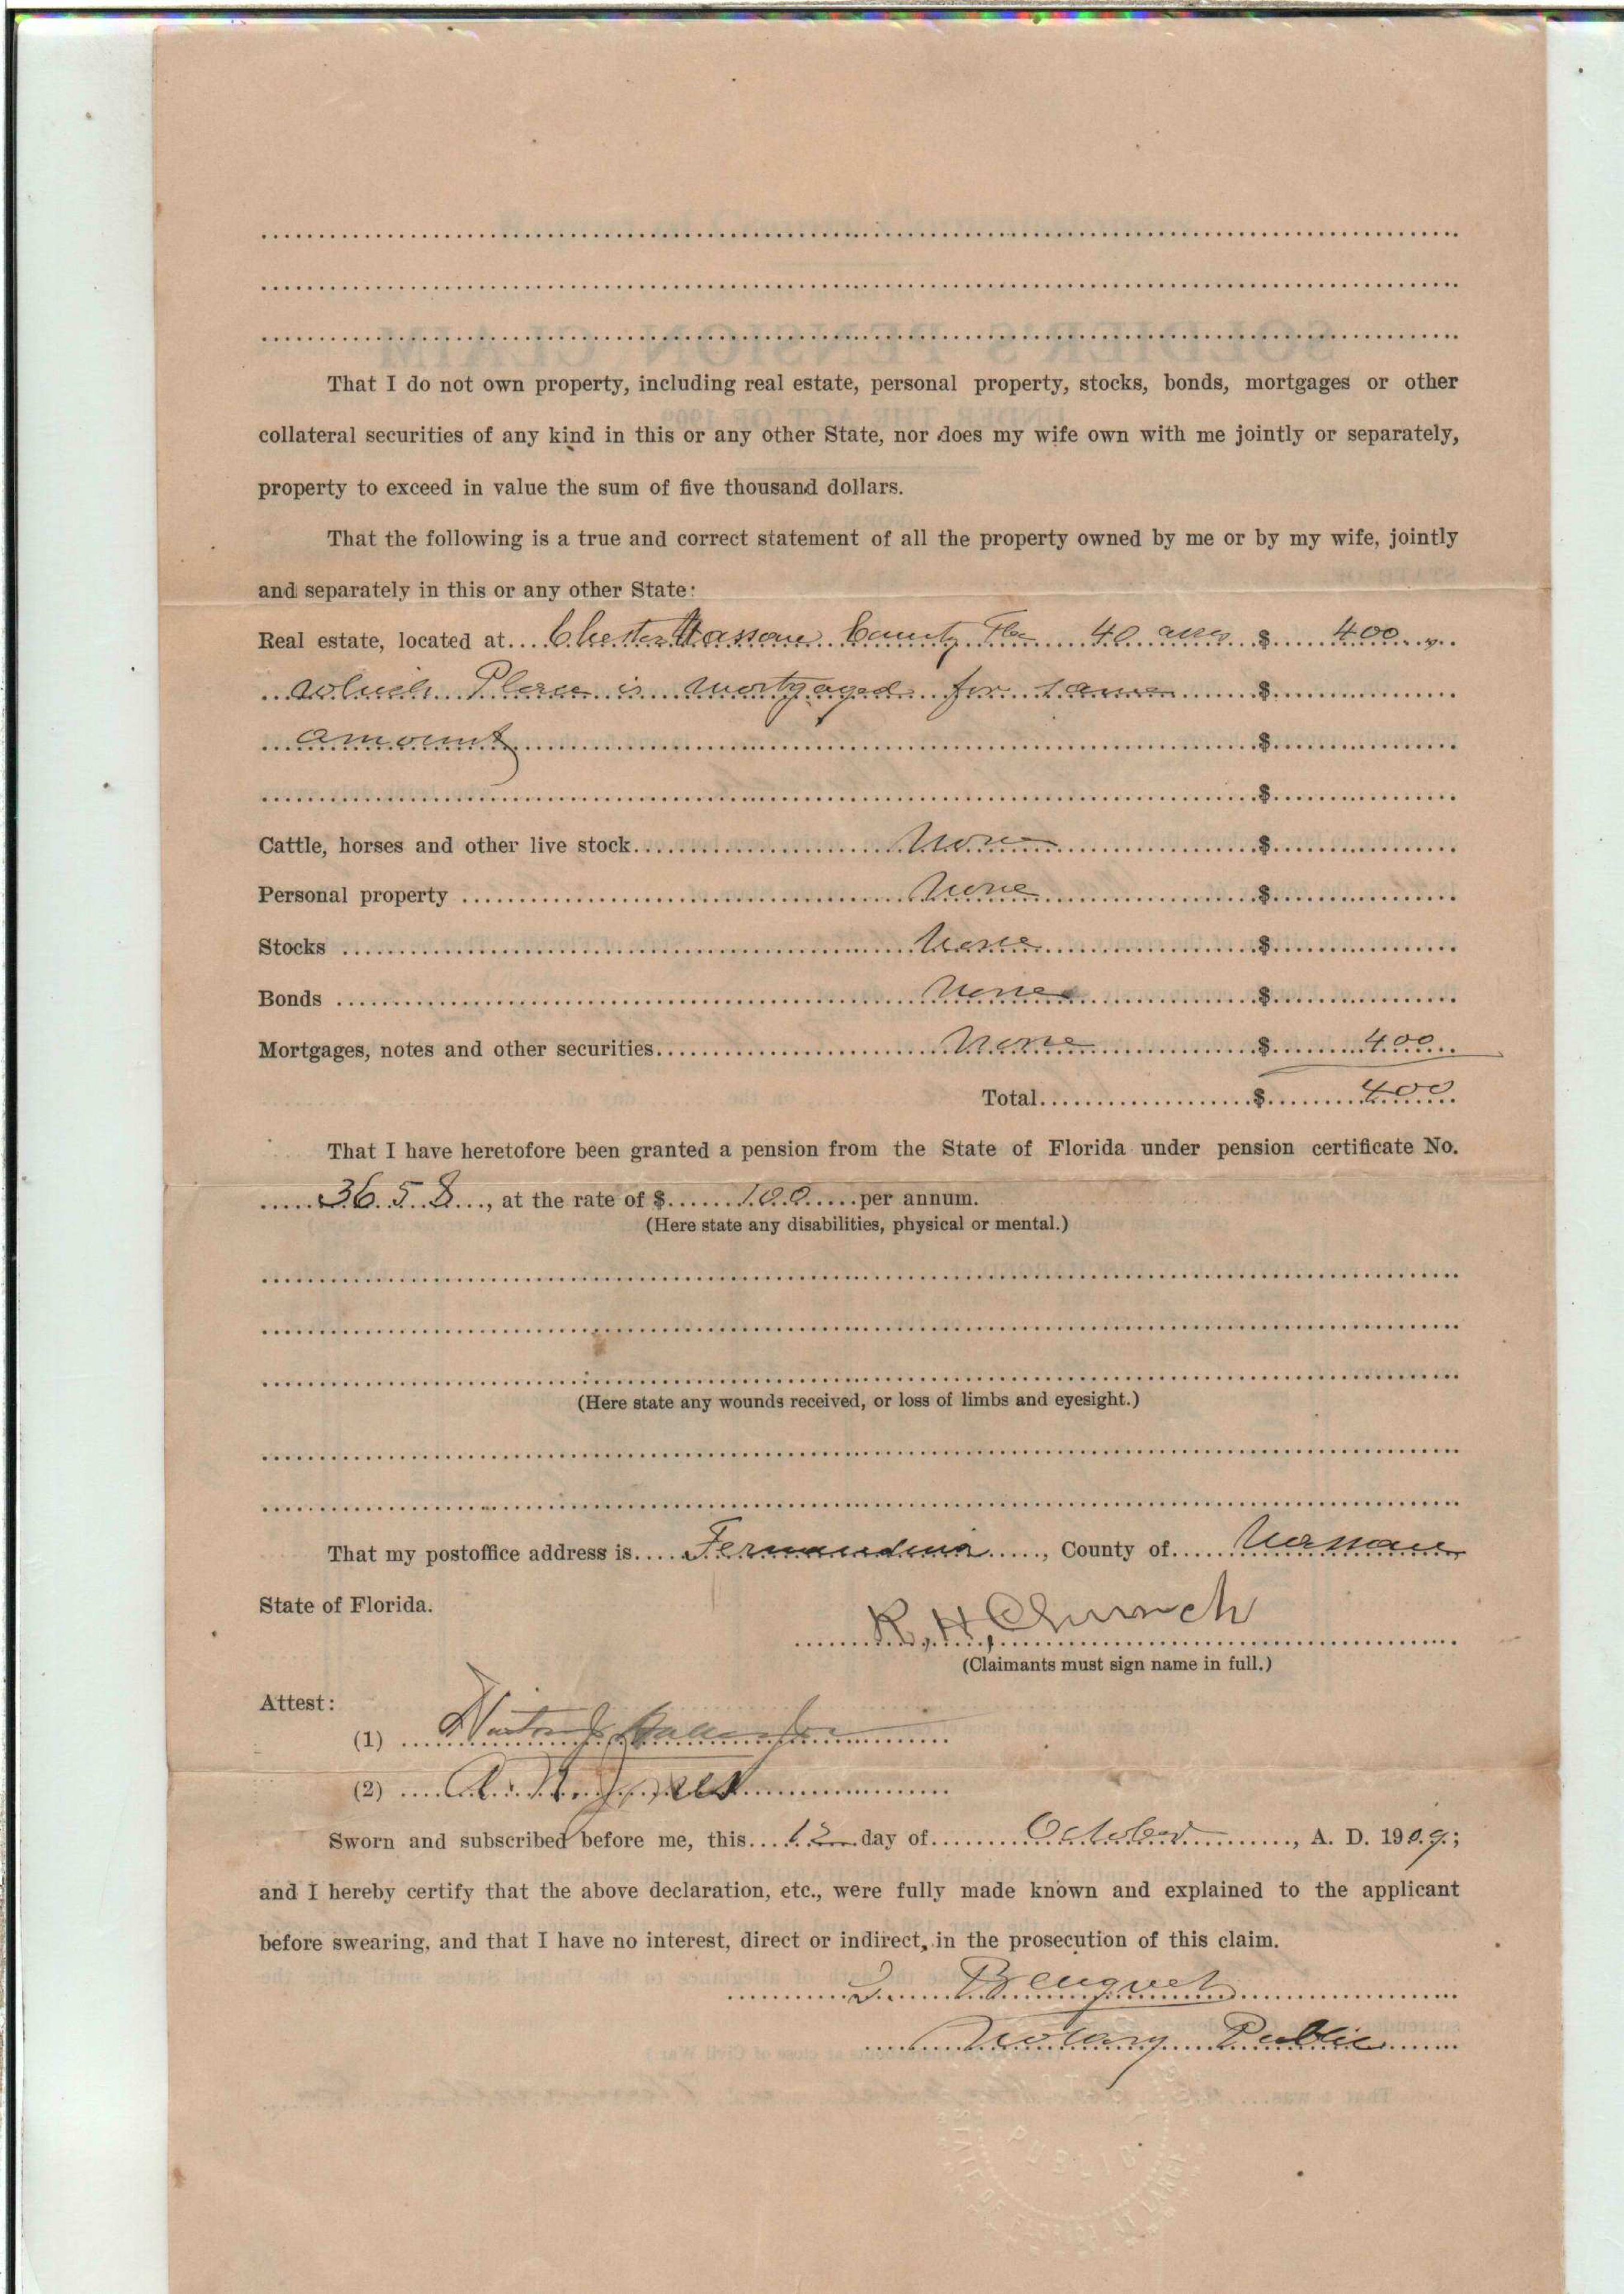 That I do not own property, including real estate, personal property, stocks, bonds, mortgages or other
collateral securities of any kind in this or any other State, nor does my wife own with me jointly or separately,
property to exceed in value the sum of five thousand dollars.
That the following is a true and correct statement of all the property owned by me or by my wife, jointly
and separately in this or any other State:
Real estate, located at Chester Nassau County Fla 40 $ 400
which Place is mortgaged for same $
amount $
$
Cattle, horses and other live stock None $
Personal property None $
Stocks None $
Bonds None $
Mortgages, notes and other securities None $ 400
Total $ 400
That I have heretofore been granted a pension from the State of Florida under pension certificate No.
3658, at the rate of $ 100 per annum.
(Here state any disabilities, physical or mental.)
(Here state any wounds received, or loss of limbs and eyesight.)
That my postoffice address is Fernandina, County of Nassau
State of Florida.
R. H. Church
(Claimants must sign name in full.)
Attest:
(1)
(2)
Sworn and subscribed before me, this 12 day of October, A. D. 1909;
and I hereby certify that the above declaration, etc., were fully made known and explained to the applicant
before swearing, and that I have no interest, direct or indirect, in the prosecution of this claim.
Notary Public